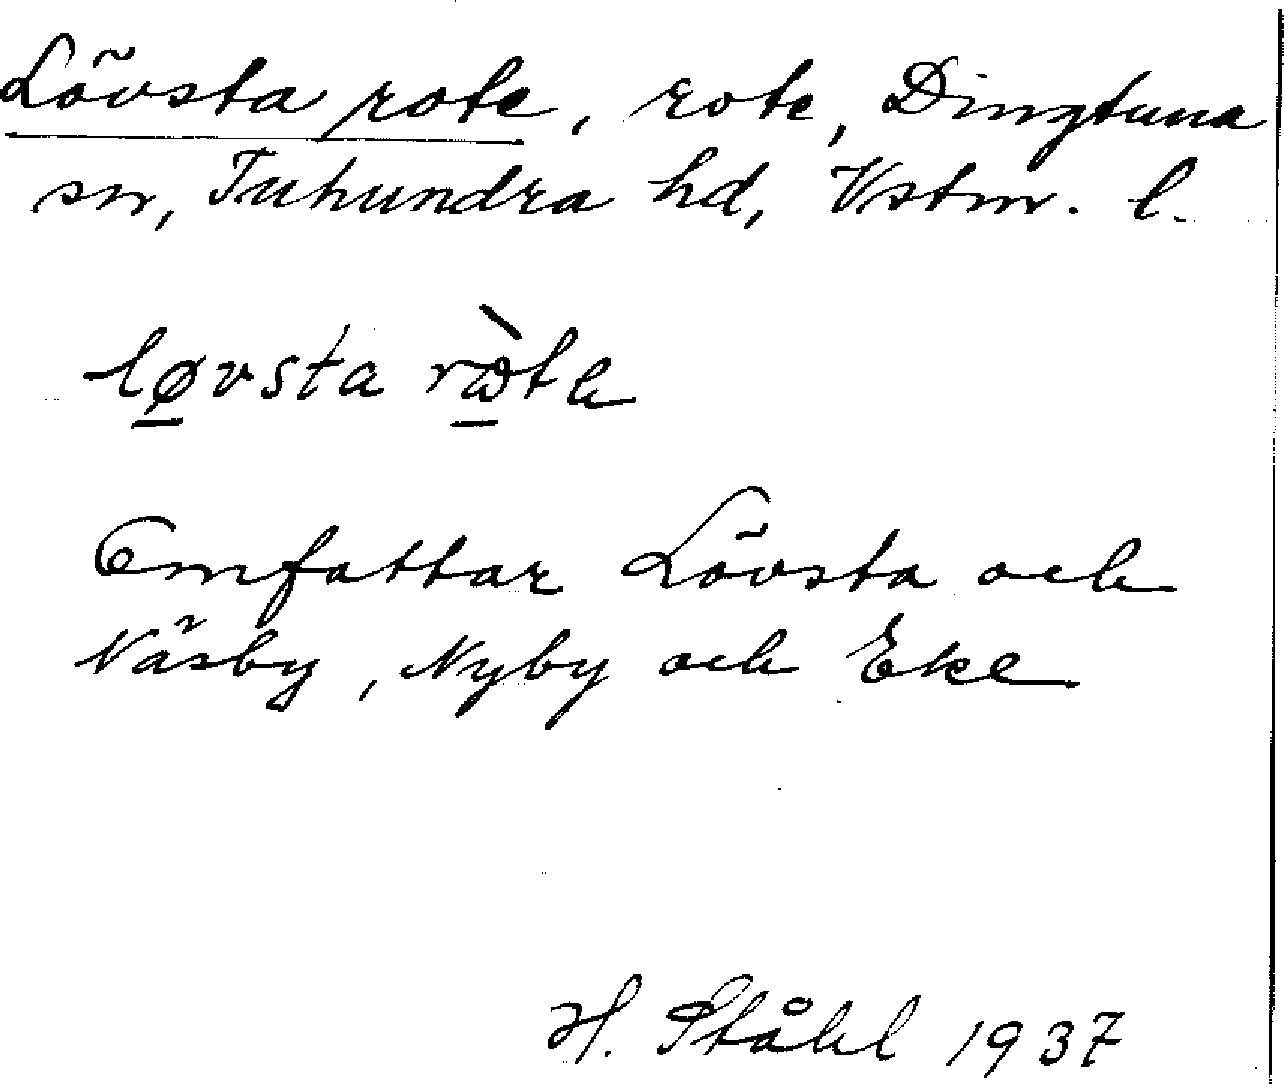 Lövsta rote, rote, Dingtuna
sn, Tuhundra hd, Vstm. l.
løvsta
Omfattar Lövsta och
Näsby, Nyby och Eke
H. Ståhl 1937